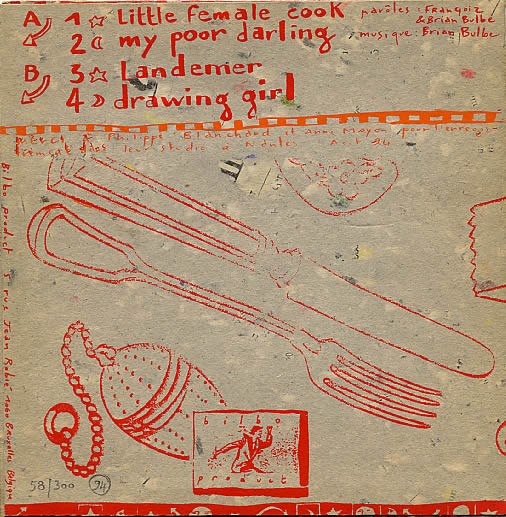 A 1 ☆ Little female cook
2 ☾ my poor darling
B 3 ☆ Landemer
4 ☽ drawing girl
parôles: Françoiz
& Brian Bulbe
musique: Brian Bulbe
merci à Philippe Blanchard et Anne Moyon pour l'enregis-
trement dans leur studio à Nantes Août 94
Bilbo product 5 rue Jean Robie 1060 Bruxelles Belgique
bilbo
product
58/300 94